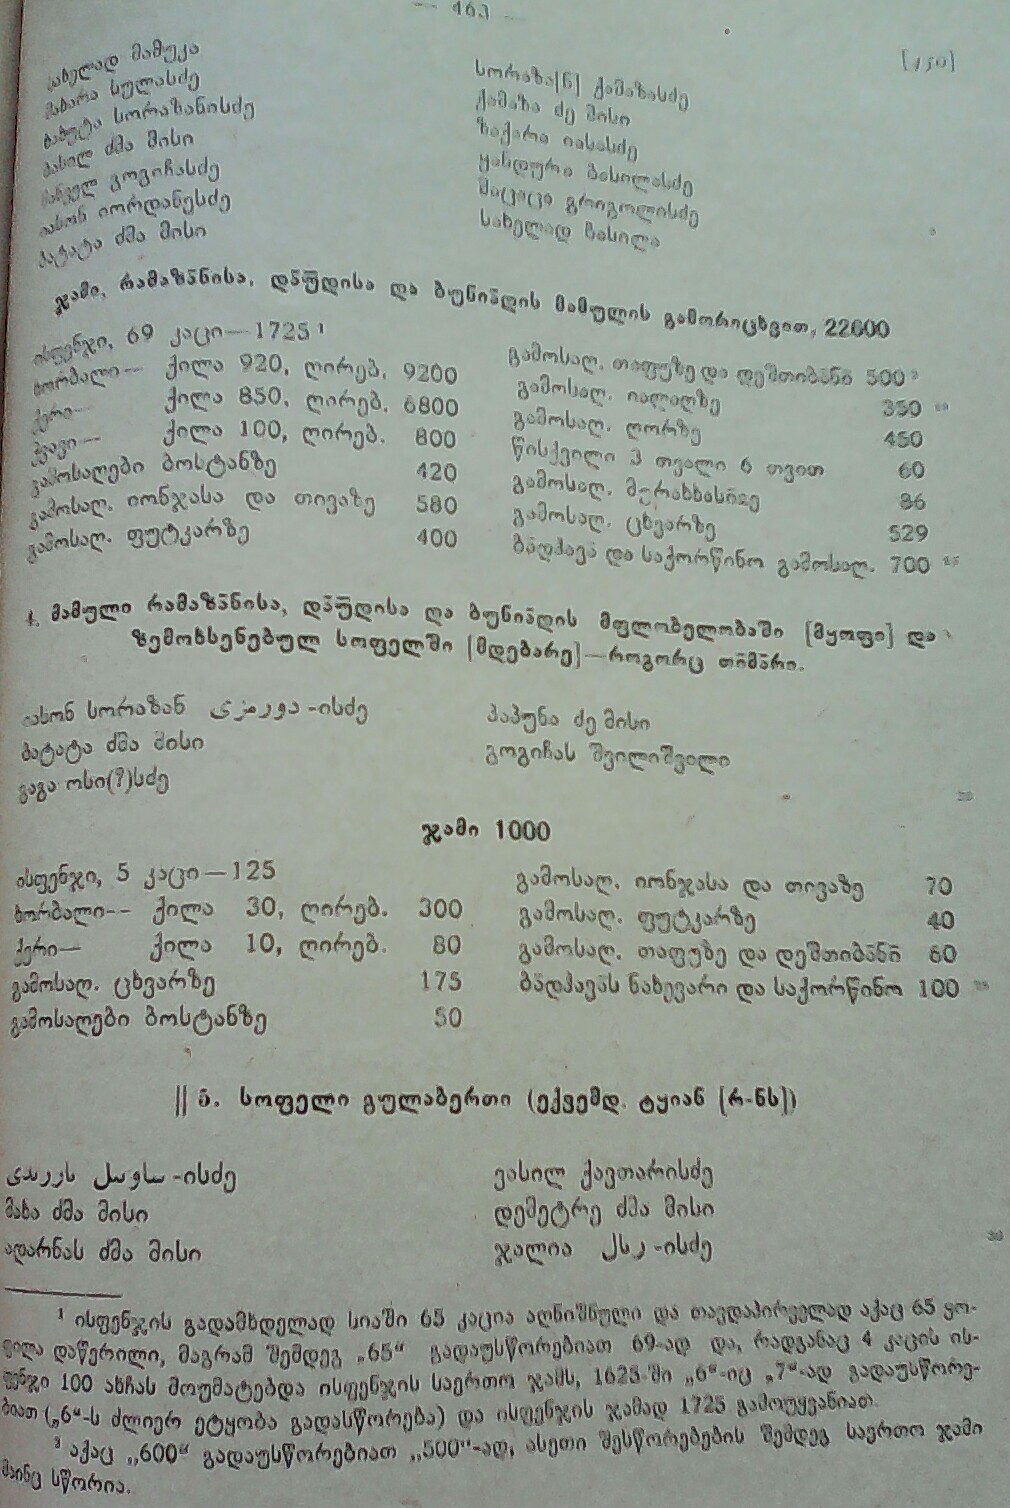 — 463 —
[150]
სახელად მამუკა
მახარა სულასძე
ბაბუტა სორაზანისძე
ბასილ ძმა მისი
გოგიჩასძე
იასონ იორდანესძე
ბატატა ძმა მისი
სორაზა[ნ] ქამაზასძე
ქამაზა ძე მისი
ზაქარა იასასძე
ყანდურა ბასილასძე
მაცაცა გრიგოლისძე
სახელად ბასილა
ჯამი, რამაზა̄ნისა, და̄უ̄დისა და ბუნია̄დის მამულის გამორიცხვით, 22600
ისფენჯი, 69 კაცი—1725 ¹
ხორბალი— ქილა 920, ღირებ. 9200
ქერი— ქილა 850, ღირებ. 6800
ჭვავი— ქილა 100, ღირებ. 800
გამოსაღები ბოსტანზე 420
გამოსაღ. იონჯასა და თივაზე 580
გამოსაღ. ფუტკარზე 400
გამოსაღ. თაფუზე და დეშთიბა̄ნა̄ 500 ²
გამოსაღ. იალაღზე 350
გამოსაღ. ღორზე 450
წისქვილი 3 თვალი 6 თვით 60
გამოსაღ. 86
გამოსაღ. ცხვარზე 529
ბა̄დჰავა̄ და საქორწინო გამოსაღ. 700
მამული რამაზა̄ნისა, და̄უ̄დისა და ბუნია̄დის მფლობელობაში [მყოფი] და
ზემოხსენებულ სოფელში [მდებარე]—როგორც თი̄მა̄რი.
იასონ სორაზან -ისძე
ბატატა ძმა მისი
გაგა ოსი(?)სძე
პაპუნა ძე მისი
გოგიჩას შვილიშვილი
20
ჯამი 1000
ისფენჯი, 5 კაცი—125
ხორბალი-- ქილა 30, ღირებ. 300
ქერი— ქილა 10, ღირებ. 80
გამოსაღ. ცხვარზე 175
გამოსაღები ბოსტანზე 50
გამოსაღ. იონჯასა და თივაზე 70
გამოსაღ. ფუტკარზე 40
გამოსაღ. თაფუზე და დეშთიბა̄ნა̄ 60
ბა̄დჰავა̄ს ნახევარი და საქორწინო 100
|| 5. სოფელი გულაბერთი (ექვემდ. ტყიან [რ-ნს])
-ისძე
მახა ძმა მისი
ადარნას ძმა მისი
ვასილ ქავთარისძე
დემეტრე ძმა მისი
ჯალია -ისძე
30
¹ ისფენჯის გადამხდელად სიაში 65 კაცია აღნიშნული და თავდაპირველად აქაც 65 ყო-
ფილა დაწერილი, მაგრამ შემდეგ „65“ გადაუსწორებიათ 69-ად და, რადგანაც 4 კაცის ის-
ფენჯი 100 ახჩას მოუმატებდა ისფენჯის საერთო ჯამს, 1625-ში „6“-იც „7“-ად გადაუსწორე-
ბიათ („6“-ს ძლიერ ეტყობა გადასწორება) და ისფენჯის ჯამად 1725 გამოუყვანიათ.
² აქაც „600“ გადაუსწორებიათ „500“-ად, ასეთი შესწორებების შემდეგ საერთო ჯამი
მაინც სწორია.